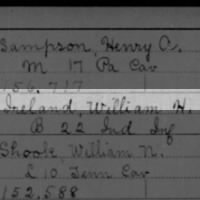 Sampson, Henry C.
M 17 Pa Cav
156,717
Ireland, William H.
B 22 Ind Inf
Shook, William N.
L 10 Tenn Cav
152,588